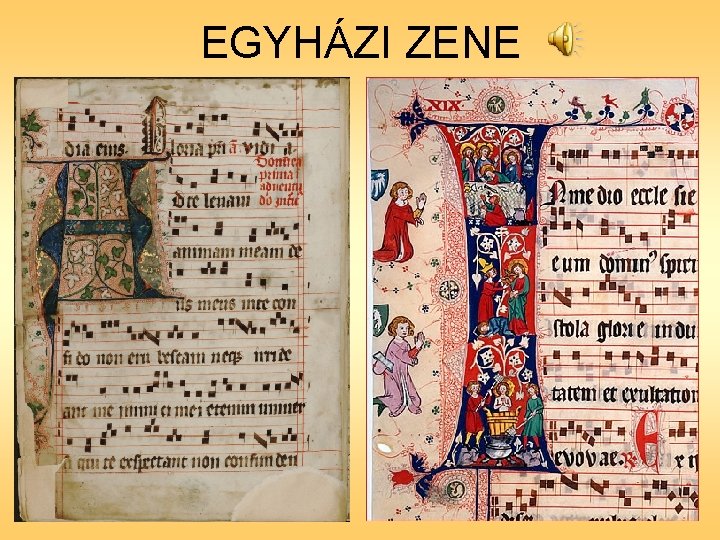 EGYHÁZI ZENE
dia eius. Gloria pri ā vidi a
Domica
prima
adventu
do īnfit
Ad te levam
animam meam de
us meus in te con
fi do non eru bescam neqꝫ irride
ant me inimi ci mei etenim univer
si qui te exspectant non confunden
XIX
In medio eccle sie
eum domin⁹ spiri
stola glori e indu
tatem et exultation
evovae. R E